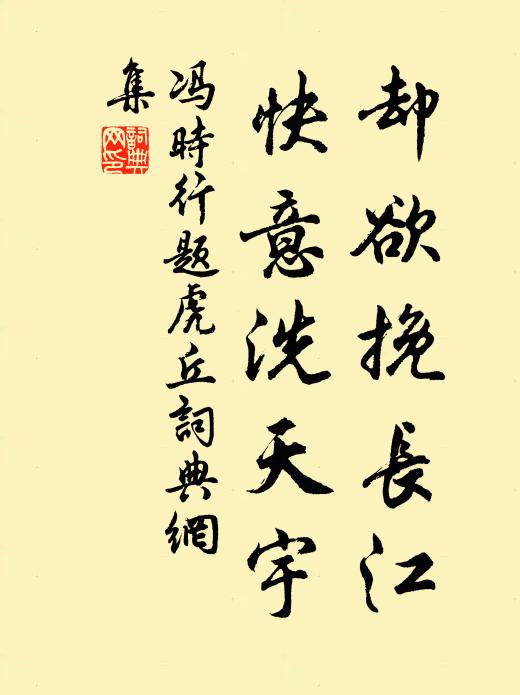 却欲挽長江
快意洗天宇
冯時行题虎丘詞典網
集
詞典网印